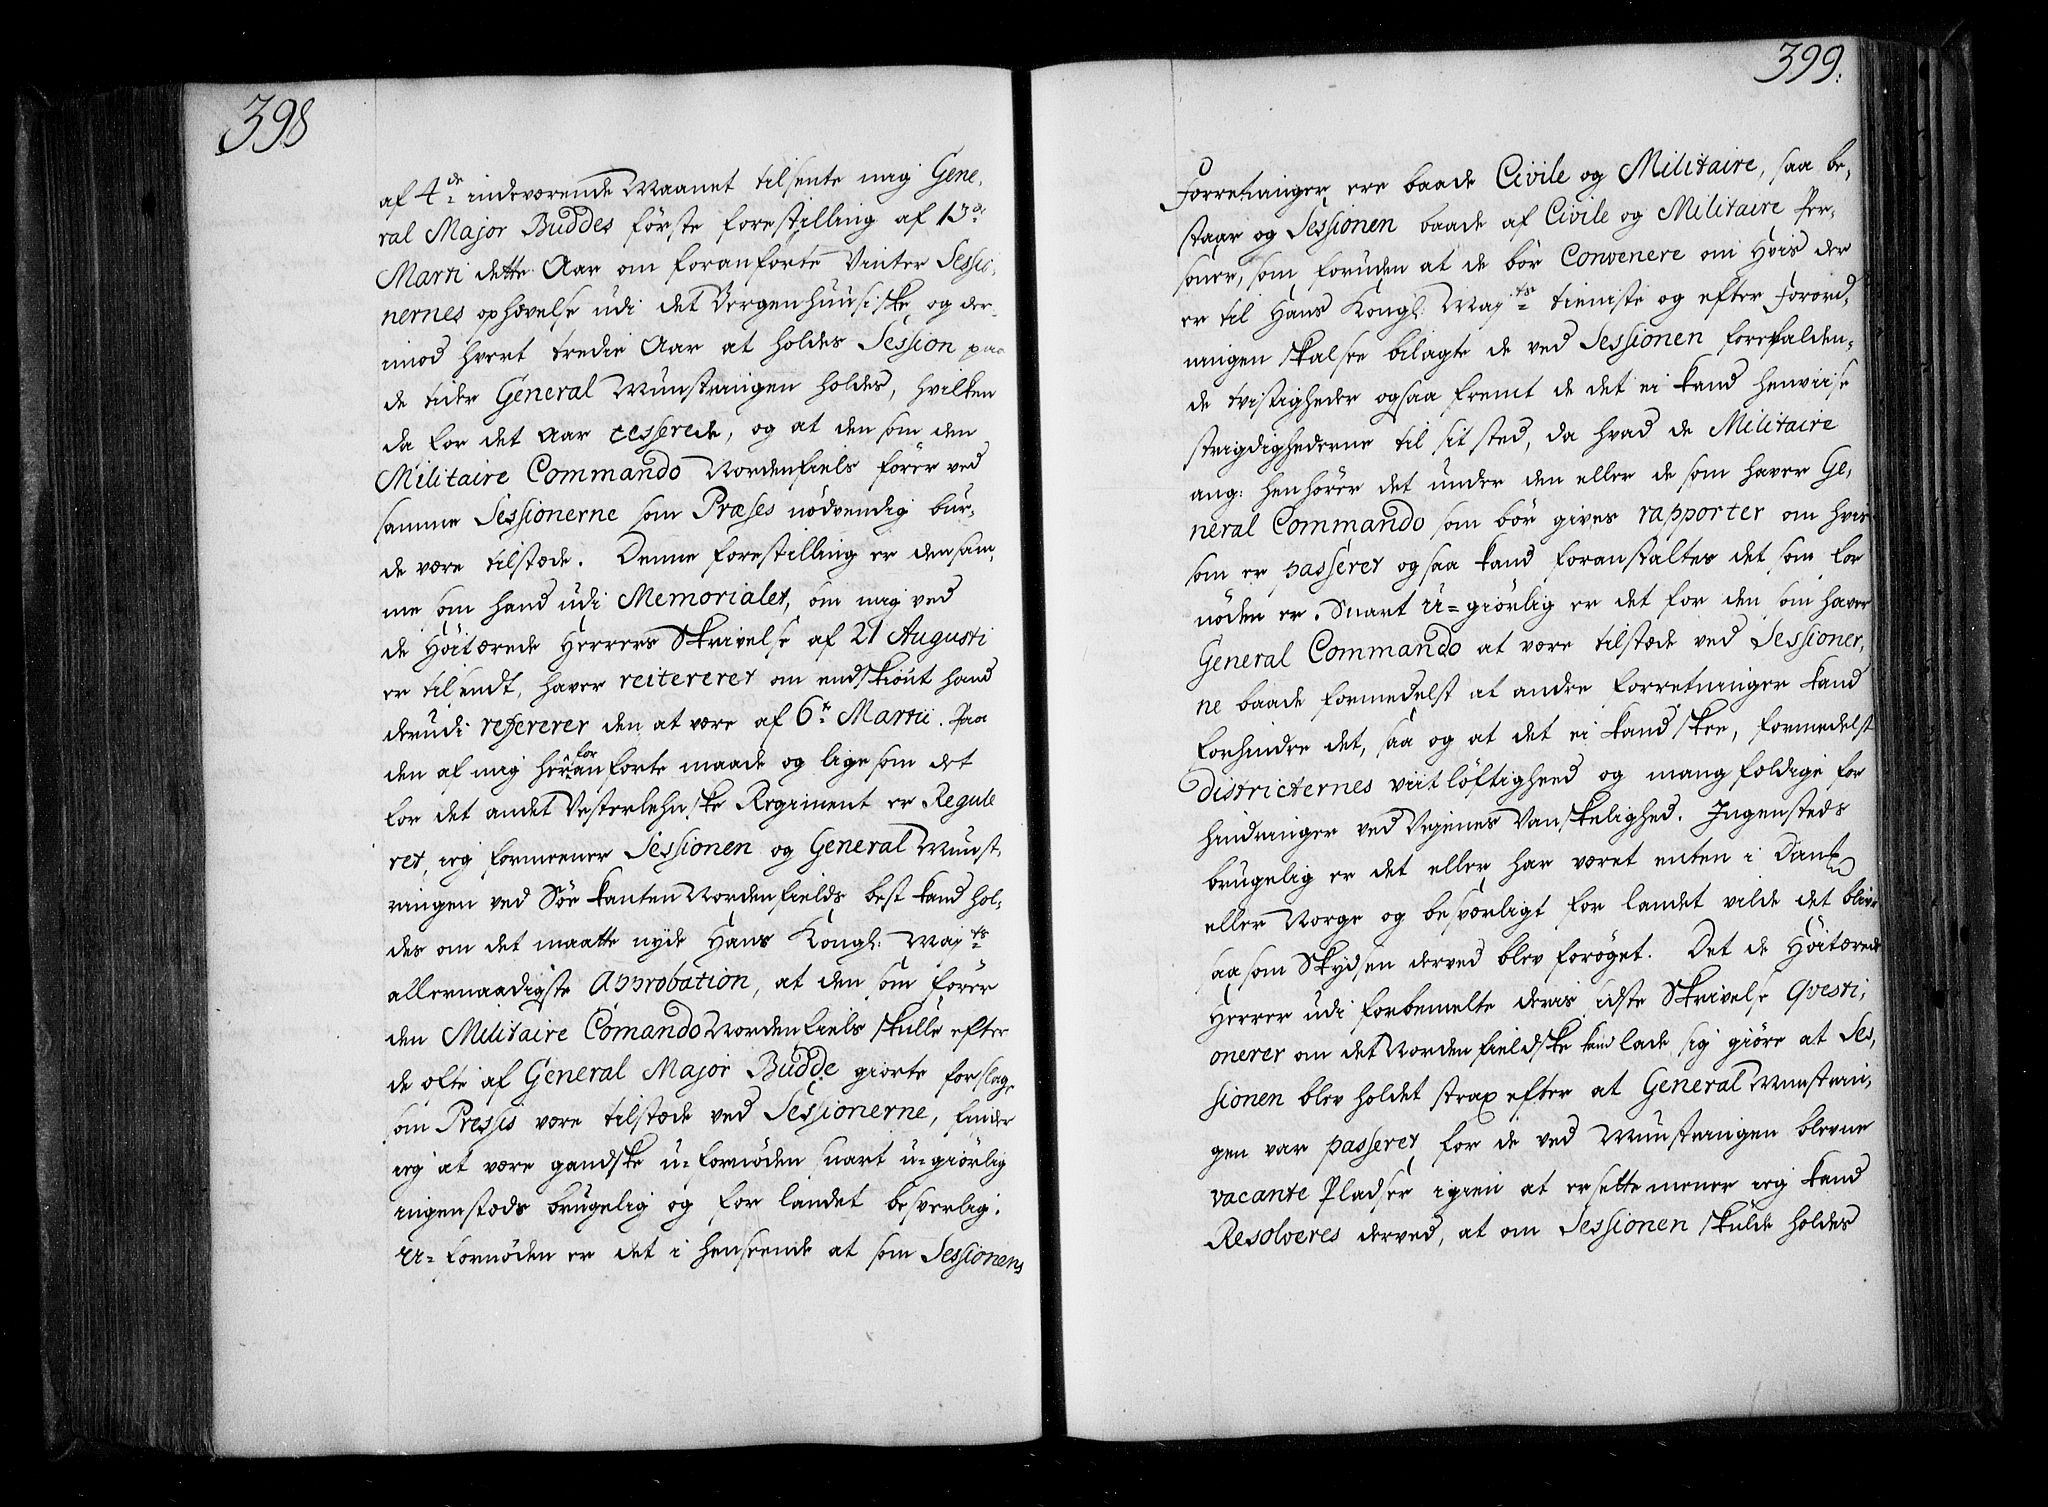 398
af 4de indeværende Maanet tilsente mig Gene,
ral Major Buddes förste forestilling af 13de
Marti dette Aar om foranförte Vinter Sessio,
nernes ophævelse udi det Bergenhuusiske, og der,
imod hvert tredie Aar at holdes Session paa
de tider General Munstringen holdes, hvilken
da for det Aar cesserede, og at den som den
Militaire Commando Nordenfiels förer ved
samme Sessionerne som Præses nödvendig bur,
de være tilstæde. Denne forestilling er den sam,
me som hand udi Memorialet, om mig ved
de Höitærede Herrers Skrivelse af 21 Augusti
er tilsendt, haver reitereret om endskiönt hand
derudi refererer den at være af 6te Martii. Paa
den af mig her for anförte maade og lige som det
for det andet Vesterlehnske Regiment er Regule
ret, ieg formeener Sessionen og General Munst,
ringen ved Söe kanten Nordenfields best kand hol,
des om det maatte nyde Hans Kongl: Majts
allernaadigste Approbation, at den som förer
den Militaire Comando Nordenfiels skulle efter
de ofte af General Major Budde giorte forslag,
som Pressis være tilstæde ved Sessionerne, finder
ieg at være gandske u-fornöden snart u-giörlig
ingenstæds brugelig og for landet besverlig.
U-fornöden er det i henseende at som Sessionens
399.
Forretninger ere baade Civile og Militaire, saa be,
staar og Sessionen baade af Civile og Militaire Per,
soner, som foruden at de bör Convenere om hvis der
er til Hans Kongl: Majts tieniste og efter Forord,
ningen skal see bilagte de ved Sessionen forefalden,
de tvistigheder ogsaa fremt de det ei kand henviise
strigdighederne til sit sted, da hvad de Militaire
ang: henhörer det under den eller de som haver Ge,
neral Commando som bör gives rapporter om hvis
som er passeret ogsaa kand foranstaltes det som for
nöden er. Snart U-giörlig er det for den som haver
General Commando at være tilstæde ved Sessioner,
ne baade formedelst at andre forretninger kand
forhindre det, saa og at det ei kand skee, formedelst
Districternes viitlöftighed og mangfoldige for
hindringer ved Vejenes Vanskelighed. Ingensteds
brugelig er det eller har været enten i Dank
eller Norge og besværligt for landet vilde det blive
saa som Skydsen derved blev foröget. Det de Höitærede
Herrer udi forbemelte deris sidste Skrivelse Qvesti,
onerer om det Nordenfieldske kand lade sig giöre at Ses,
sionen blev holdet strax efter at General Munstrin,
gen var passeret, for de ved Munstringen blevne
vacante Pladser igien at ersette mener ieg kand
Resolveres derved, at om Sessionen skulde holdes